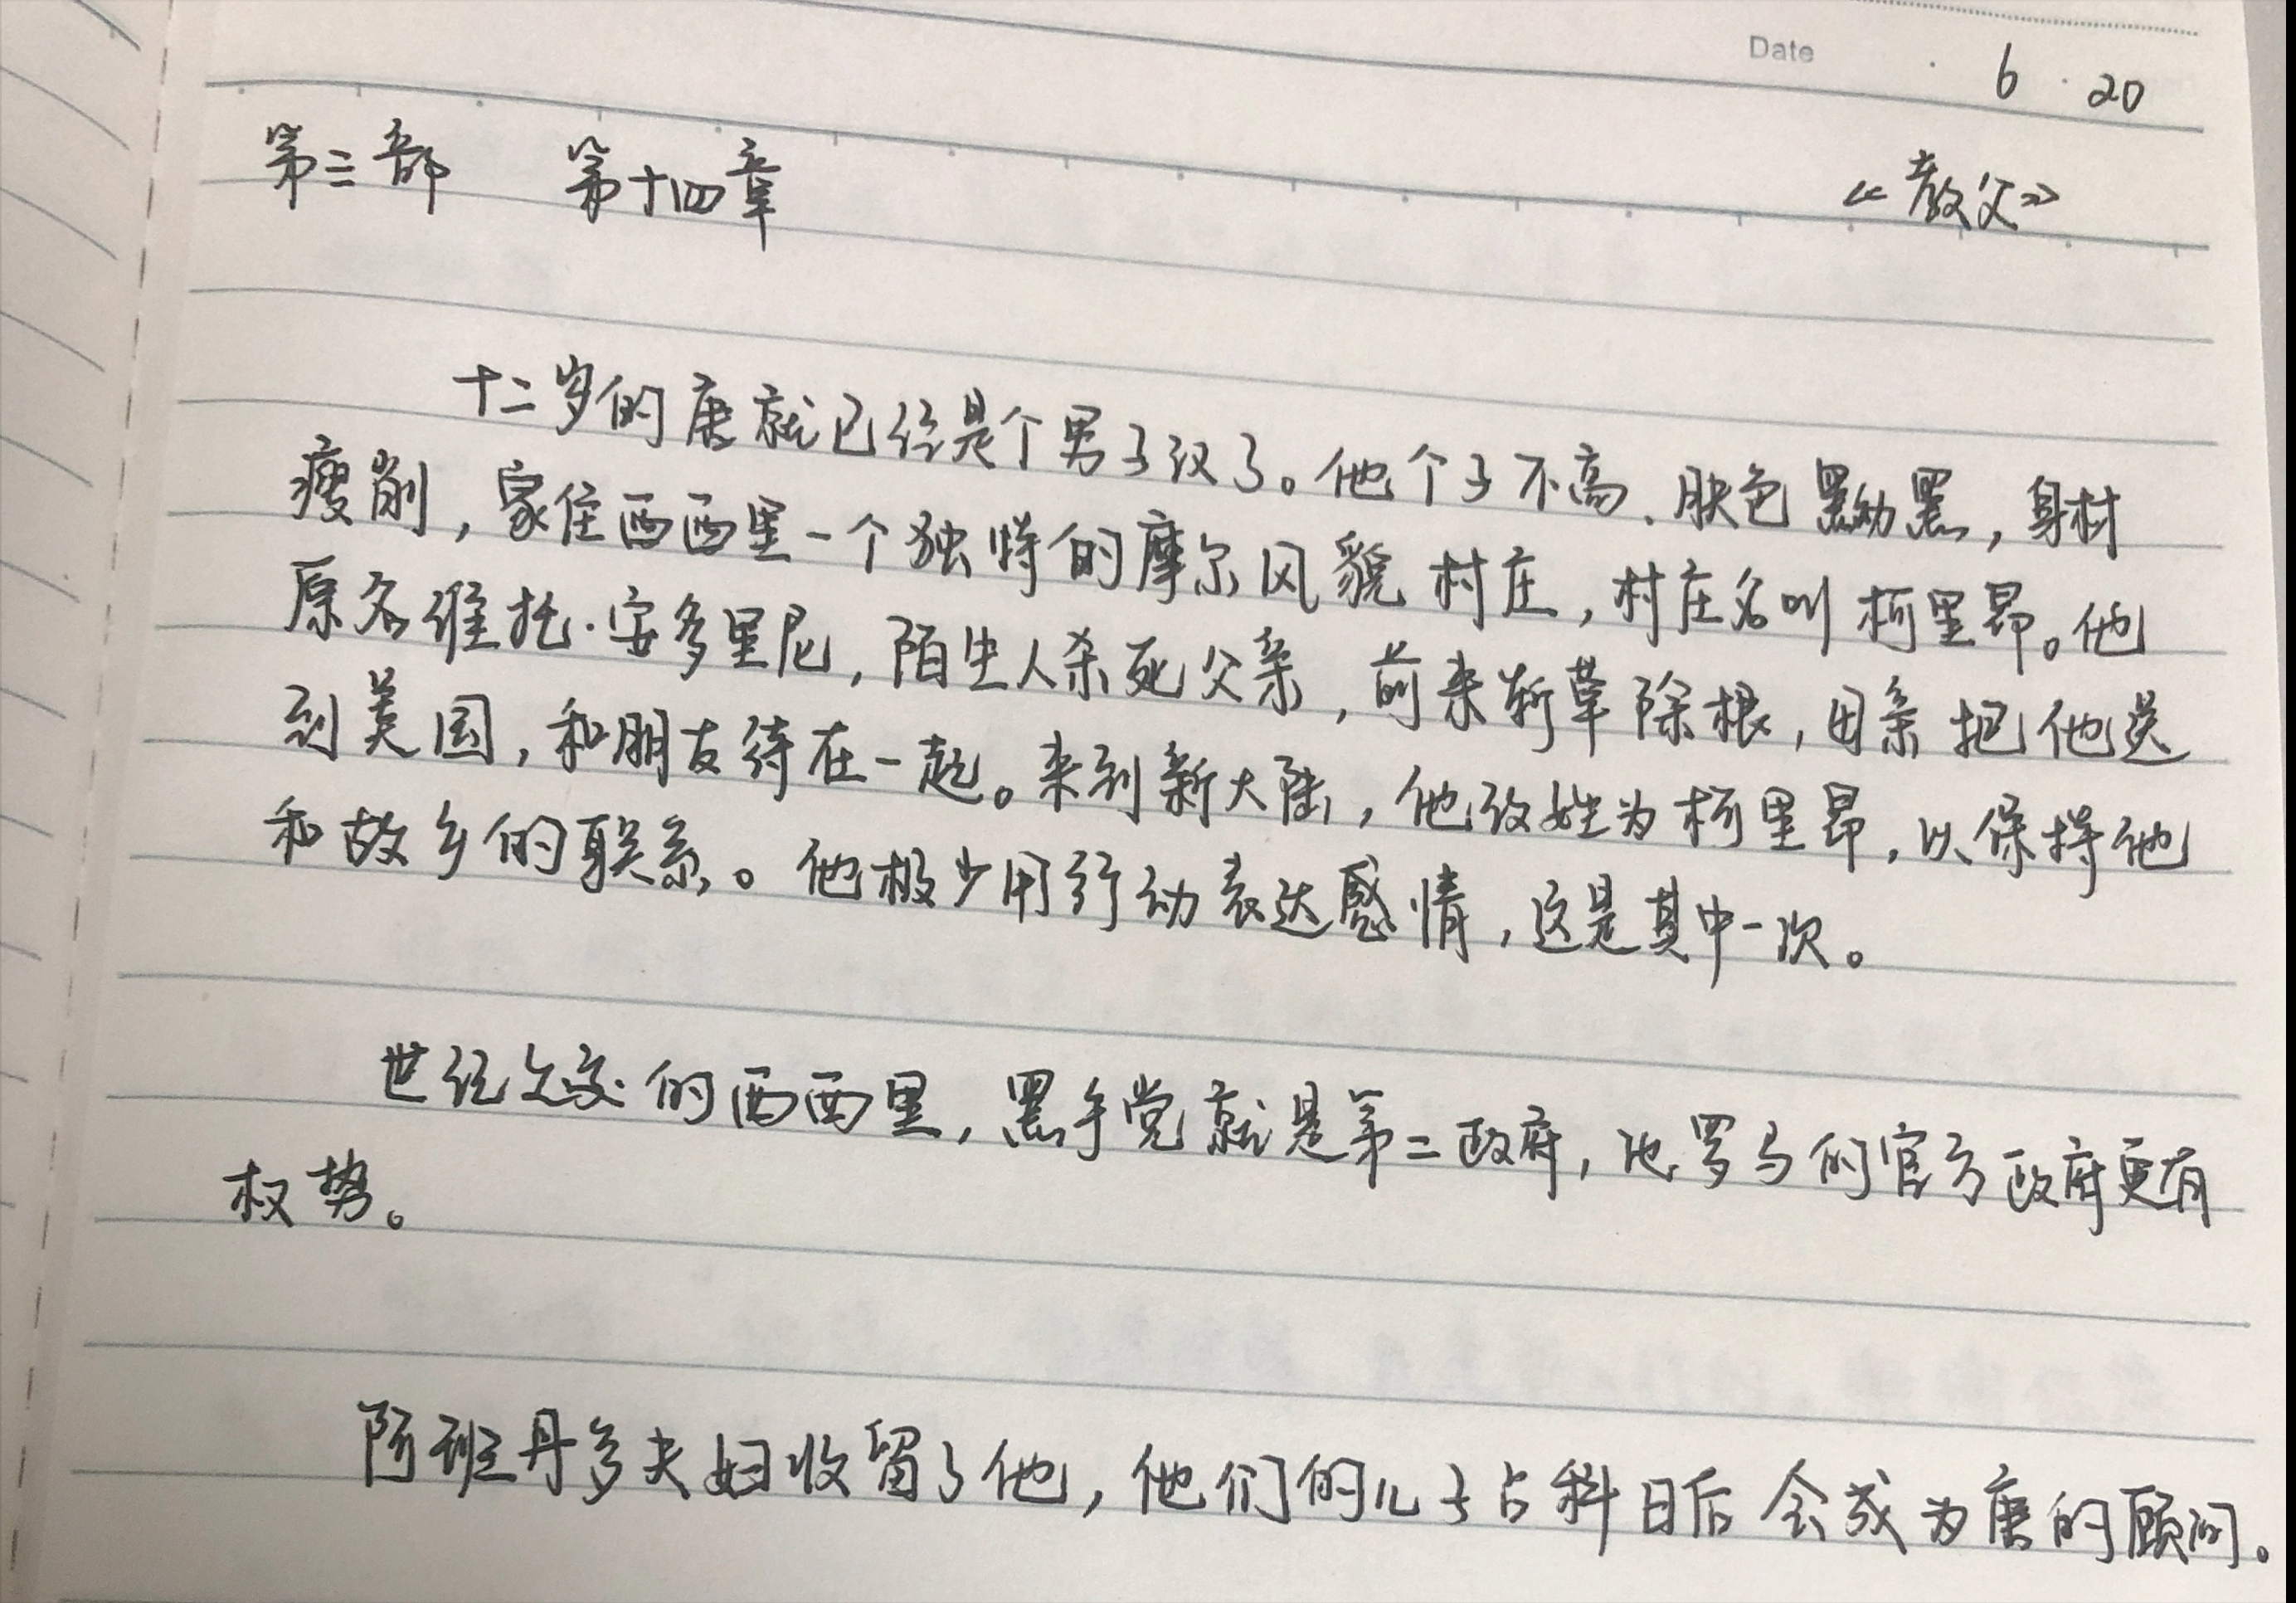 Date · 6 · 20
第三部 第十四章 《教父》
十二岁的唐就已经是个男子汉了。他个子不高、肤色黝黑，身材
瘦削，家住西西里一个独特的摩尔风貌村庄，村庄名叫柯里昂。他
原名维托·安多里尼，陌生人杀死父亲，前来斩草除根，母亲把他送
到美国，和朋友待在一起。来到新大陆，他改姓为柯里昂，以保持他
和故乡的联系。他极少用行动表达感情，这是其中一次。
世纪之交的西西里，黑手党就是第二政府，比罗马的官方政府更有
权势。
阿班丹多夫妇收留了他，他们的儿子占科日后会成为唐的顾问。